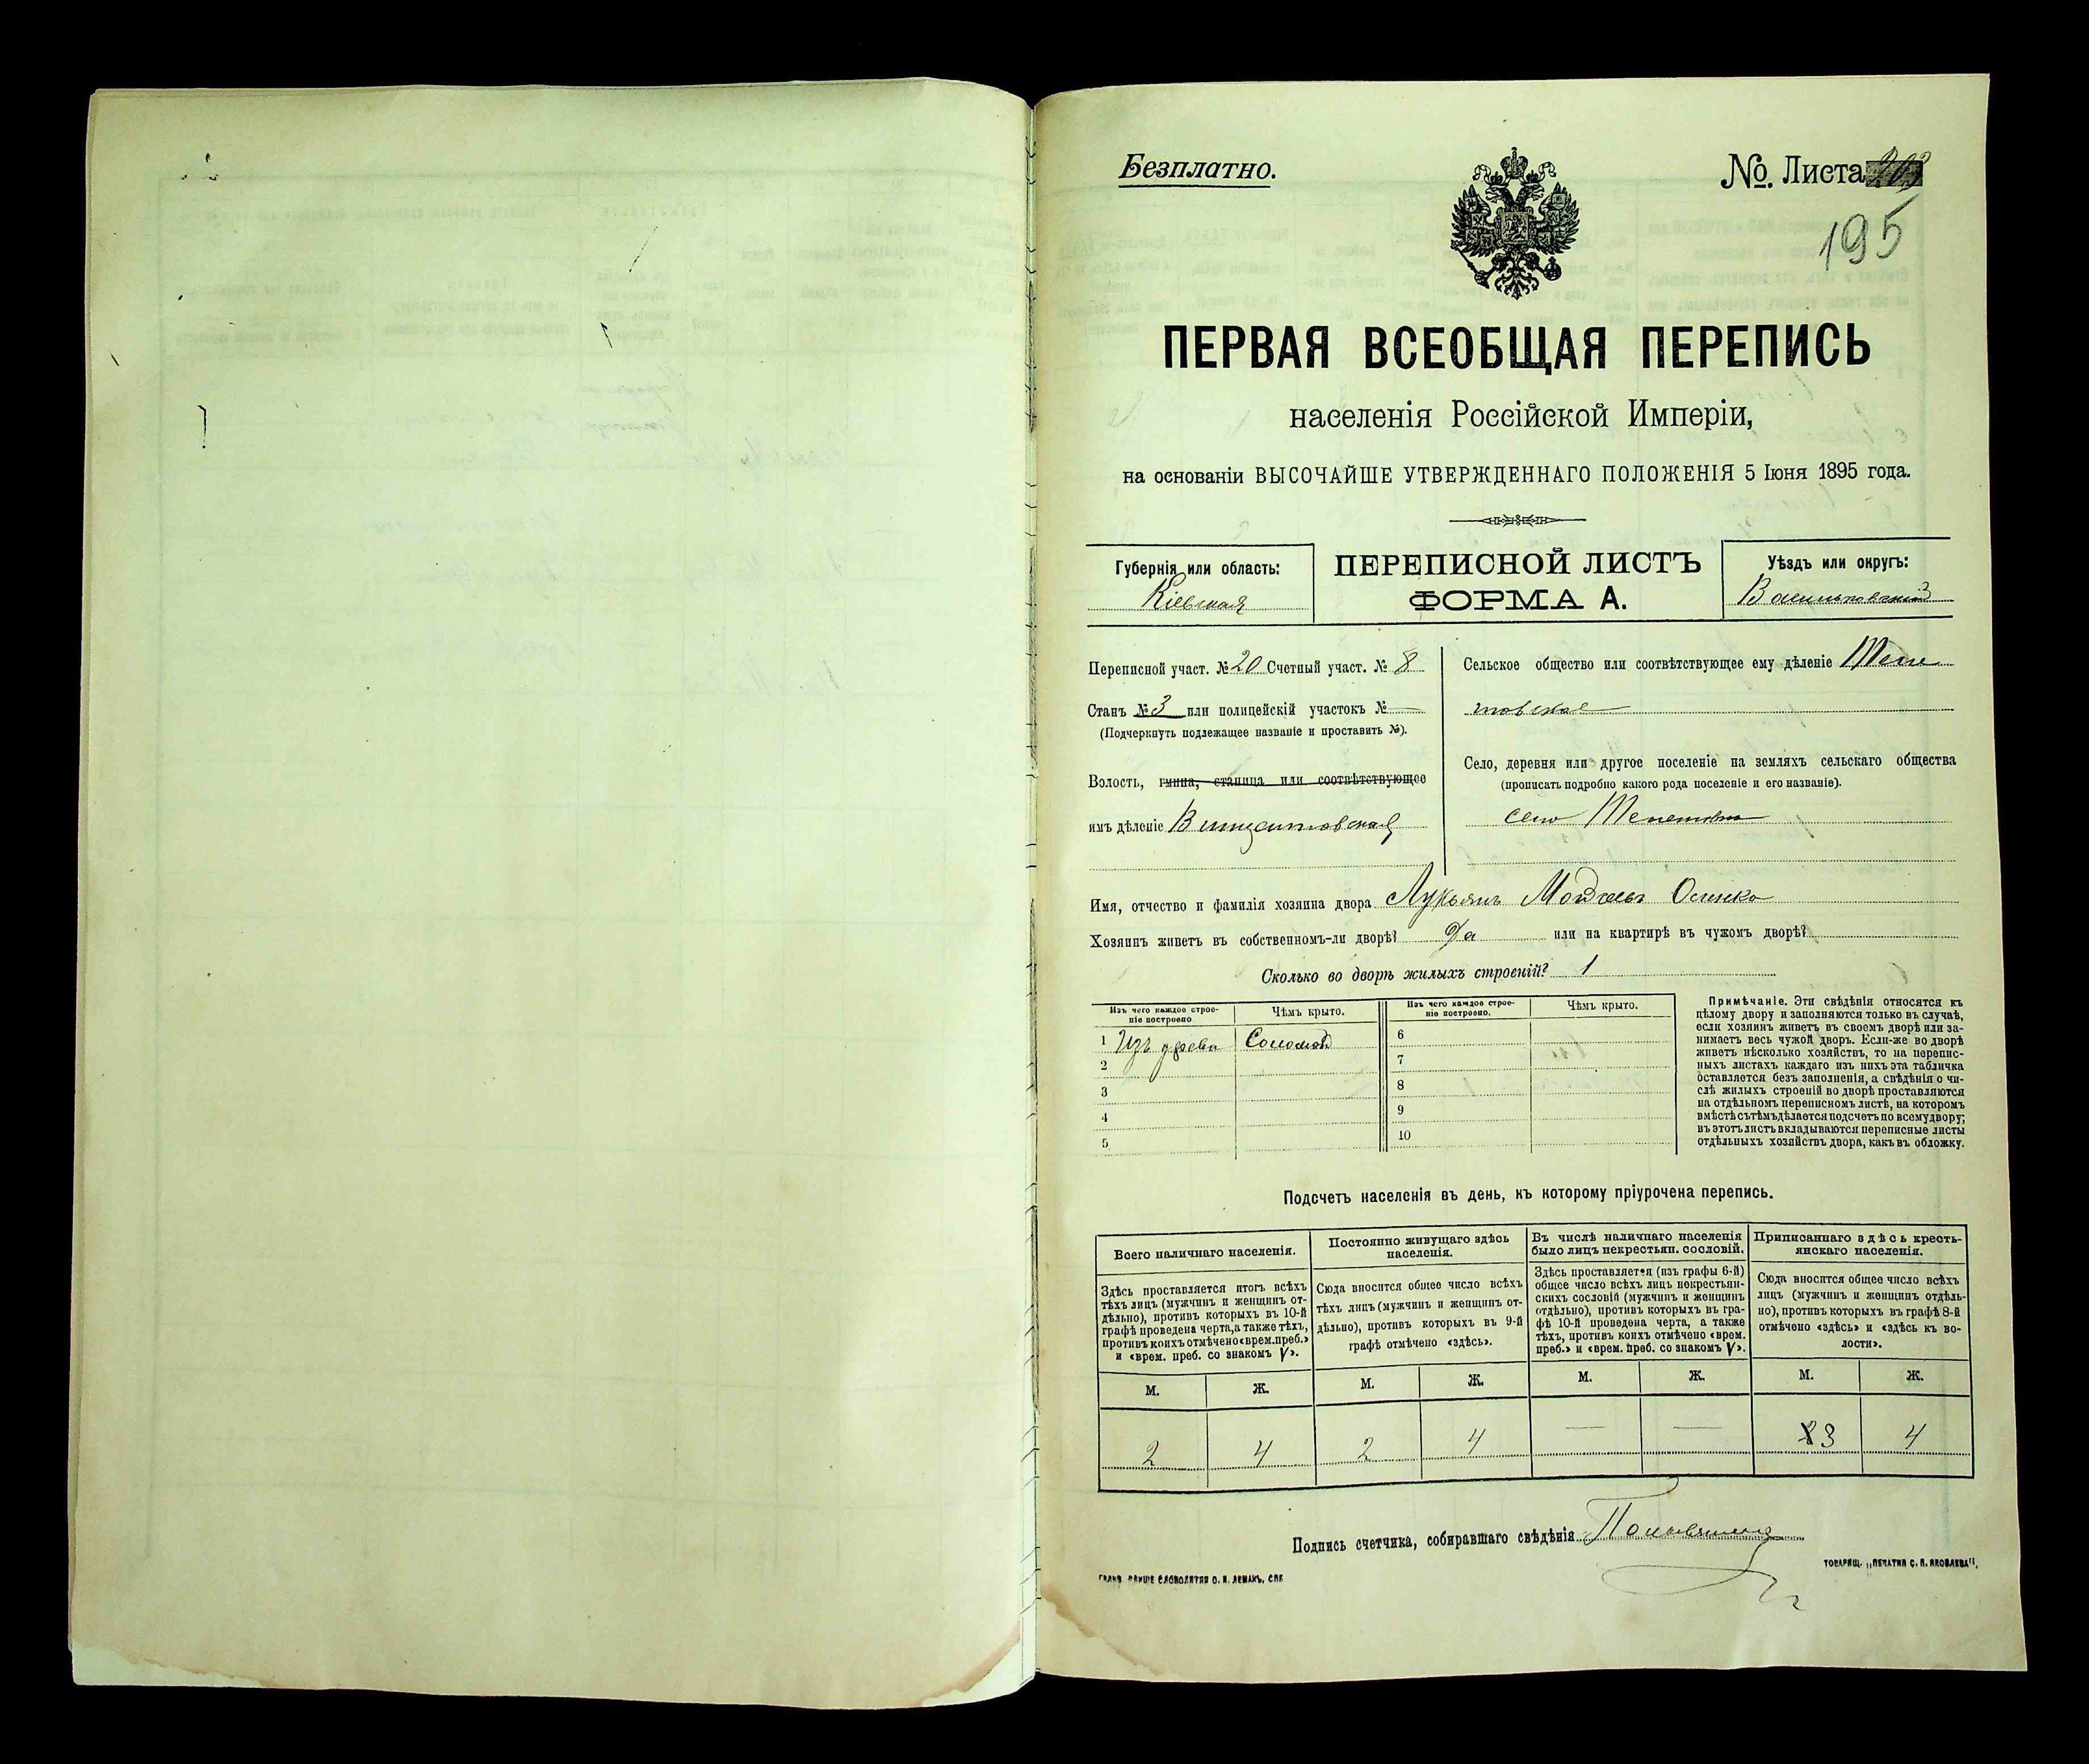 Безплатно.
№ Листа 203
195
ПЕРВАЯ ВСЕОБЩАЯ ПЕРЕПИСЬ
населенія Россійской Имперіи,
на основаніи ВЫСОЧАЙШЕ УТВЕРЖДЕННАГО ПОЛОЖЕНІЯ 5 Іюня 1895 года.
Губернія или область:
Кіевская
ПЕРЕПИСНОЙ ЛИСТЪ
ФОРМА А.
Уѣздъ или округъ:
Васильковскій
Переписной участ. № 20 Счетный участ. № 8
Станъ № 3 или полицейскій участокъ № —
(Подчеркнуть подлежащее названіе и проставить №).
Волость, гмина, станица или соотвѣтствующее
имъ дѣленіе Винцентовская
Сельское общество или соотвѣтствующее ему дѣленіе
товское
Село, деревня или другое поселеніе на земляхъ сельскаго общества
(прописать подробно какого рода поселеніе и его названіе).
село
Имя, отчество и фамилія хозяина двора Лукьянъ
Хозяинъ живетъ въ собственномъ-ли дворѣ? Да или на квартирѣ въ чужомъ дворѣ?
Сколько во дворѣ жилыхъ строеній? 1
Изъ чего каждое строе-
ніе построено
Чѣмъ крыто.
1 Изъ древа Соломой
2
3
4
5
Изъ чего каждое строе-
ніе построено.
Чѣмъ крыто.
6
7
8
9
10
Примѣчаніе. Эти свѣдѣнія относятся къ
цѣлому двору и заполняются только въ случаѣ,
если хозяинъ живетъ въ своемъ дворѣ или за-
нимаетъ весь чужой дворъ. Если-же во дворѣ
живетъ нѣсколько хозяйствъ, то на перепис-
ныхъ листахъ каждаго изъ нихъ эта табличка
оставляется безъ заполненія, а свѣдѣнія о чи-
слѣ жилыхъ строеній во дворѣ проставляются
на отдѣльномъ переписномъ листѣ, на которомъ
вмѣстѣ съ тѣмъ дѣлается подсчетъ по всему двору;
въ этотъ листъ вкладываются переписные листы
отдѣльныхъ хозяйствъ двора, какъ въ обложку.
Подсчетъ населенія въ день, къ которому пріурочена перепись.
Всего наличнаго населенія.
Здѣсь проставляется итогъ всѣхъ
тѣхъ лицъ (мужчинъ и женщинъ от-
дѣльно), противъ которыхъ въ 10-й
графѣ проведена черта, а также тѣхъ,
противъ коихъ отмѣчено «врем. преб.»
и «врем. преб. со знакомъ V».
М. Ж.
2 4
Постоянно живущаго здѣсь
населенія.
Сюда вносится общее число всѣхъ
тѣхъ лицъ (мужчинъ и женщинъ от-
дѣльно), противъ которыхъ въ 9-й
графѣ отмѣчено «здѣсь».
М. Ж.
2 4
Въ числѣ наличнаго населенія
было лицъ некрестьян. сословій.
Здѣсь проставляется (изъ графы 6-й)
общее число всѣхъ лицъ некрестьян-
скихъ сословій (мужчинъ и женщинъ
отдѣльно), противъ которыхъ въ гра-
фѣ 10-й проведена черта, а также
тѣхъ, противъ коихъ отмѣчено «врем.
преб.» и «врем. преб. со знакомъ V».
М. Ж.
— —
Приписаннаго здѣсь кресть-
янскаго населенія.
Сюда вносится общее число всѣхъ
лицъ (мужчинъ и женщинъ отдѣль-
но), противъ которыхъ въ графѣ 8-й
отмѣчено «здѣсь» и «здѣсь къ во-
лости».
М. Ж.
3 4
Подпись счетчика, собиравшаго свѣдѣнія
ТОВАРИЩ. „ПЕЧАТНЯ С. П. ЯКОВЛЕВА".